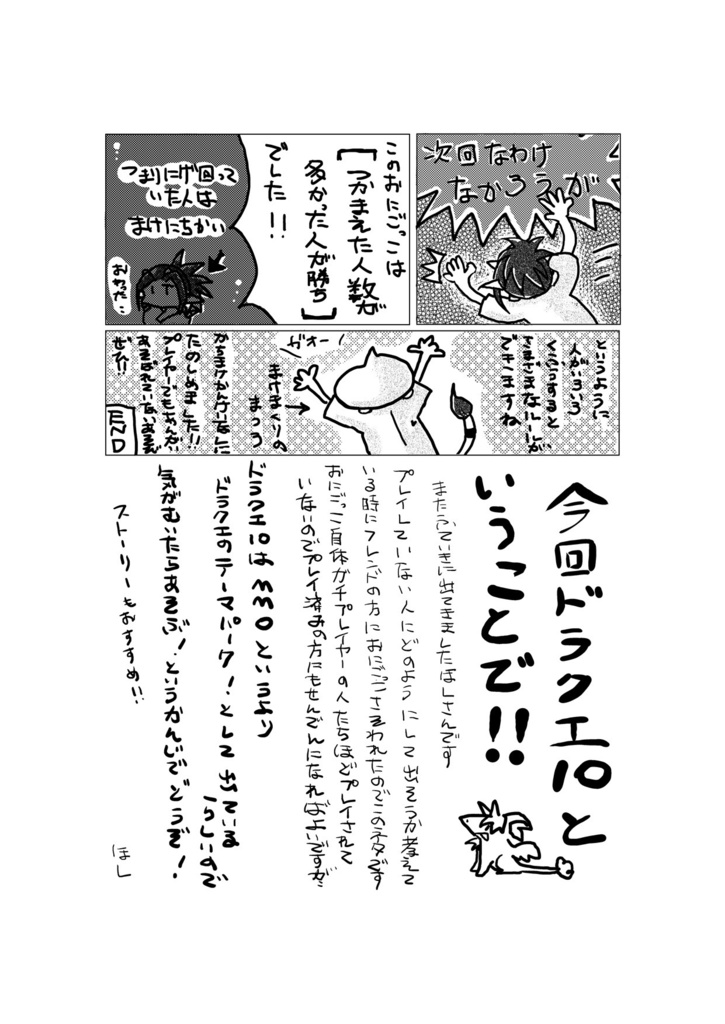 次回なわけ
なかろうが
このおにごっこは
つかまえた人数が
多かった人が勝ち
でした!!
つまりにげ回って
いた人は
まけにちがい
おわった…
というように
人がいろいろ
くふうすると
さまざまなルールが
できますね
ガオー!
まけまくりの
まつろ
かちまけかんけいなしに
たのしめました!!
プレイヤーでもあんがい
あそばれていないあそび
ぜひ!!
END
今回ドラクエ10と
いうことで!!
またふていきに出てきましたほしさんです
プレイしていない人にどのようにして出そうか考えて
いる時にフレンドの方におにごっこさそわれたのでこのネタです
おにごっこ自体がチプレイヤーの人たちほどプレイされて
いないのでプレイ済みの方にもせんでんになればよいですが、
ドラクエ10はMMOというより
ドラクエのテーマパーク!として出ている
らしいので
気がむいたらあそぶ!というかんじでどうぞ!
ストーリーもおすすめ!!
ほし